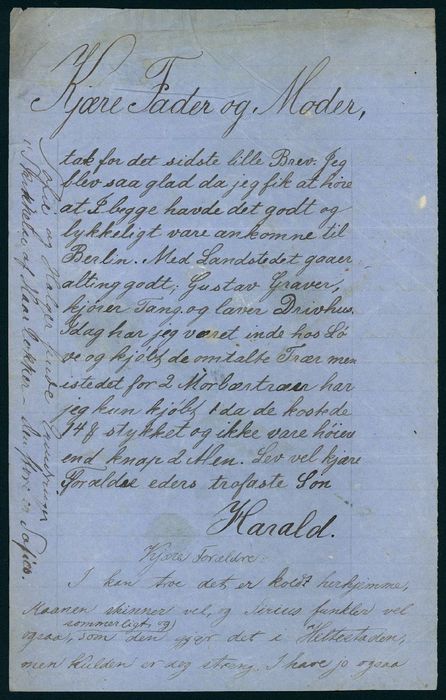 Kjære Fader og Moder,
tak for det sidste lille Brev. Jeg
blev saa glad da jeg fik at höre
at I begge havde det godt og
lykkeligt vare ankomne til
Berlin. Med Landstedet gaaer
alting godt; Gustav Graver,
kjörer Tang og laver Drivhus.
Idag har jeg været inde hos Lö
ve og kjöbt de omtalte Trær men
istedet for 2 Morbærtræer har
jeg kun kjöbt 1 da de kostede
14 stykket og ikke vare höiere
end knap 2 Alen. Lev vel kjære
Forældre eders trofaste Sön
Harald.
Kjære Forældre.
I kan troe det er koldt herhjemme,
Maanen skinner vel, og Sirius funkler vel
sommerligt, og
ogsaa, som den gjør det i Heltestaden,
men Kulden er dog streng. I have jo ogsaa
Sofie og Holger
af
Sofie.